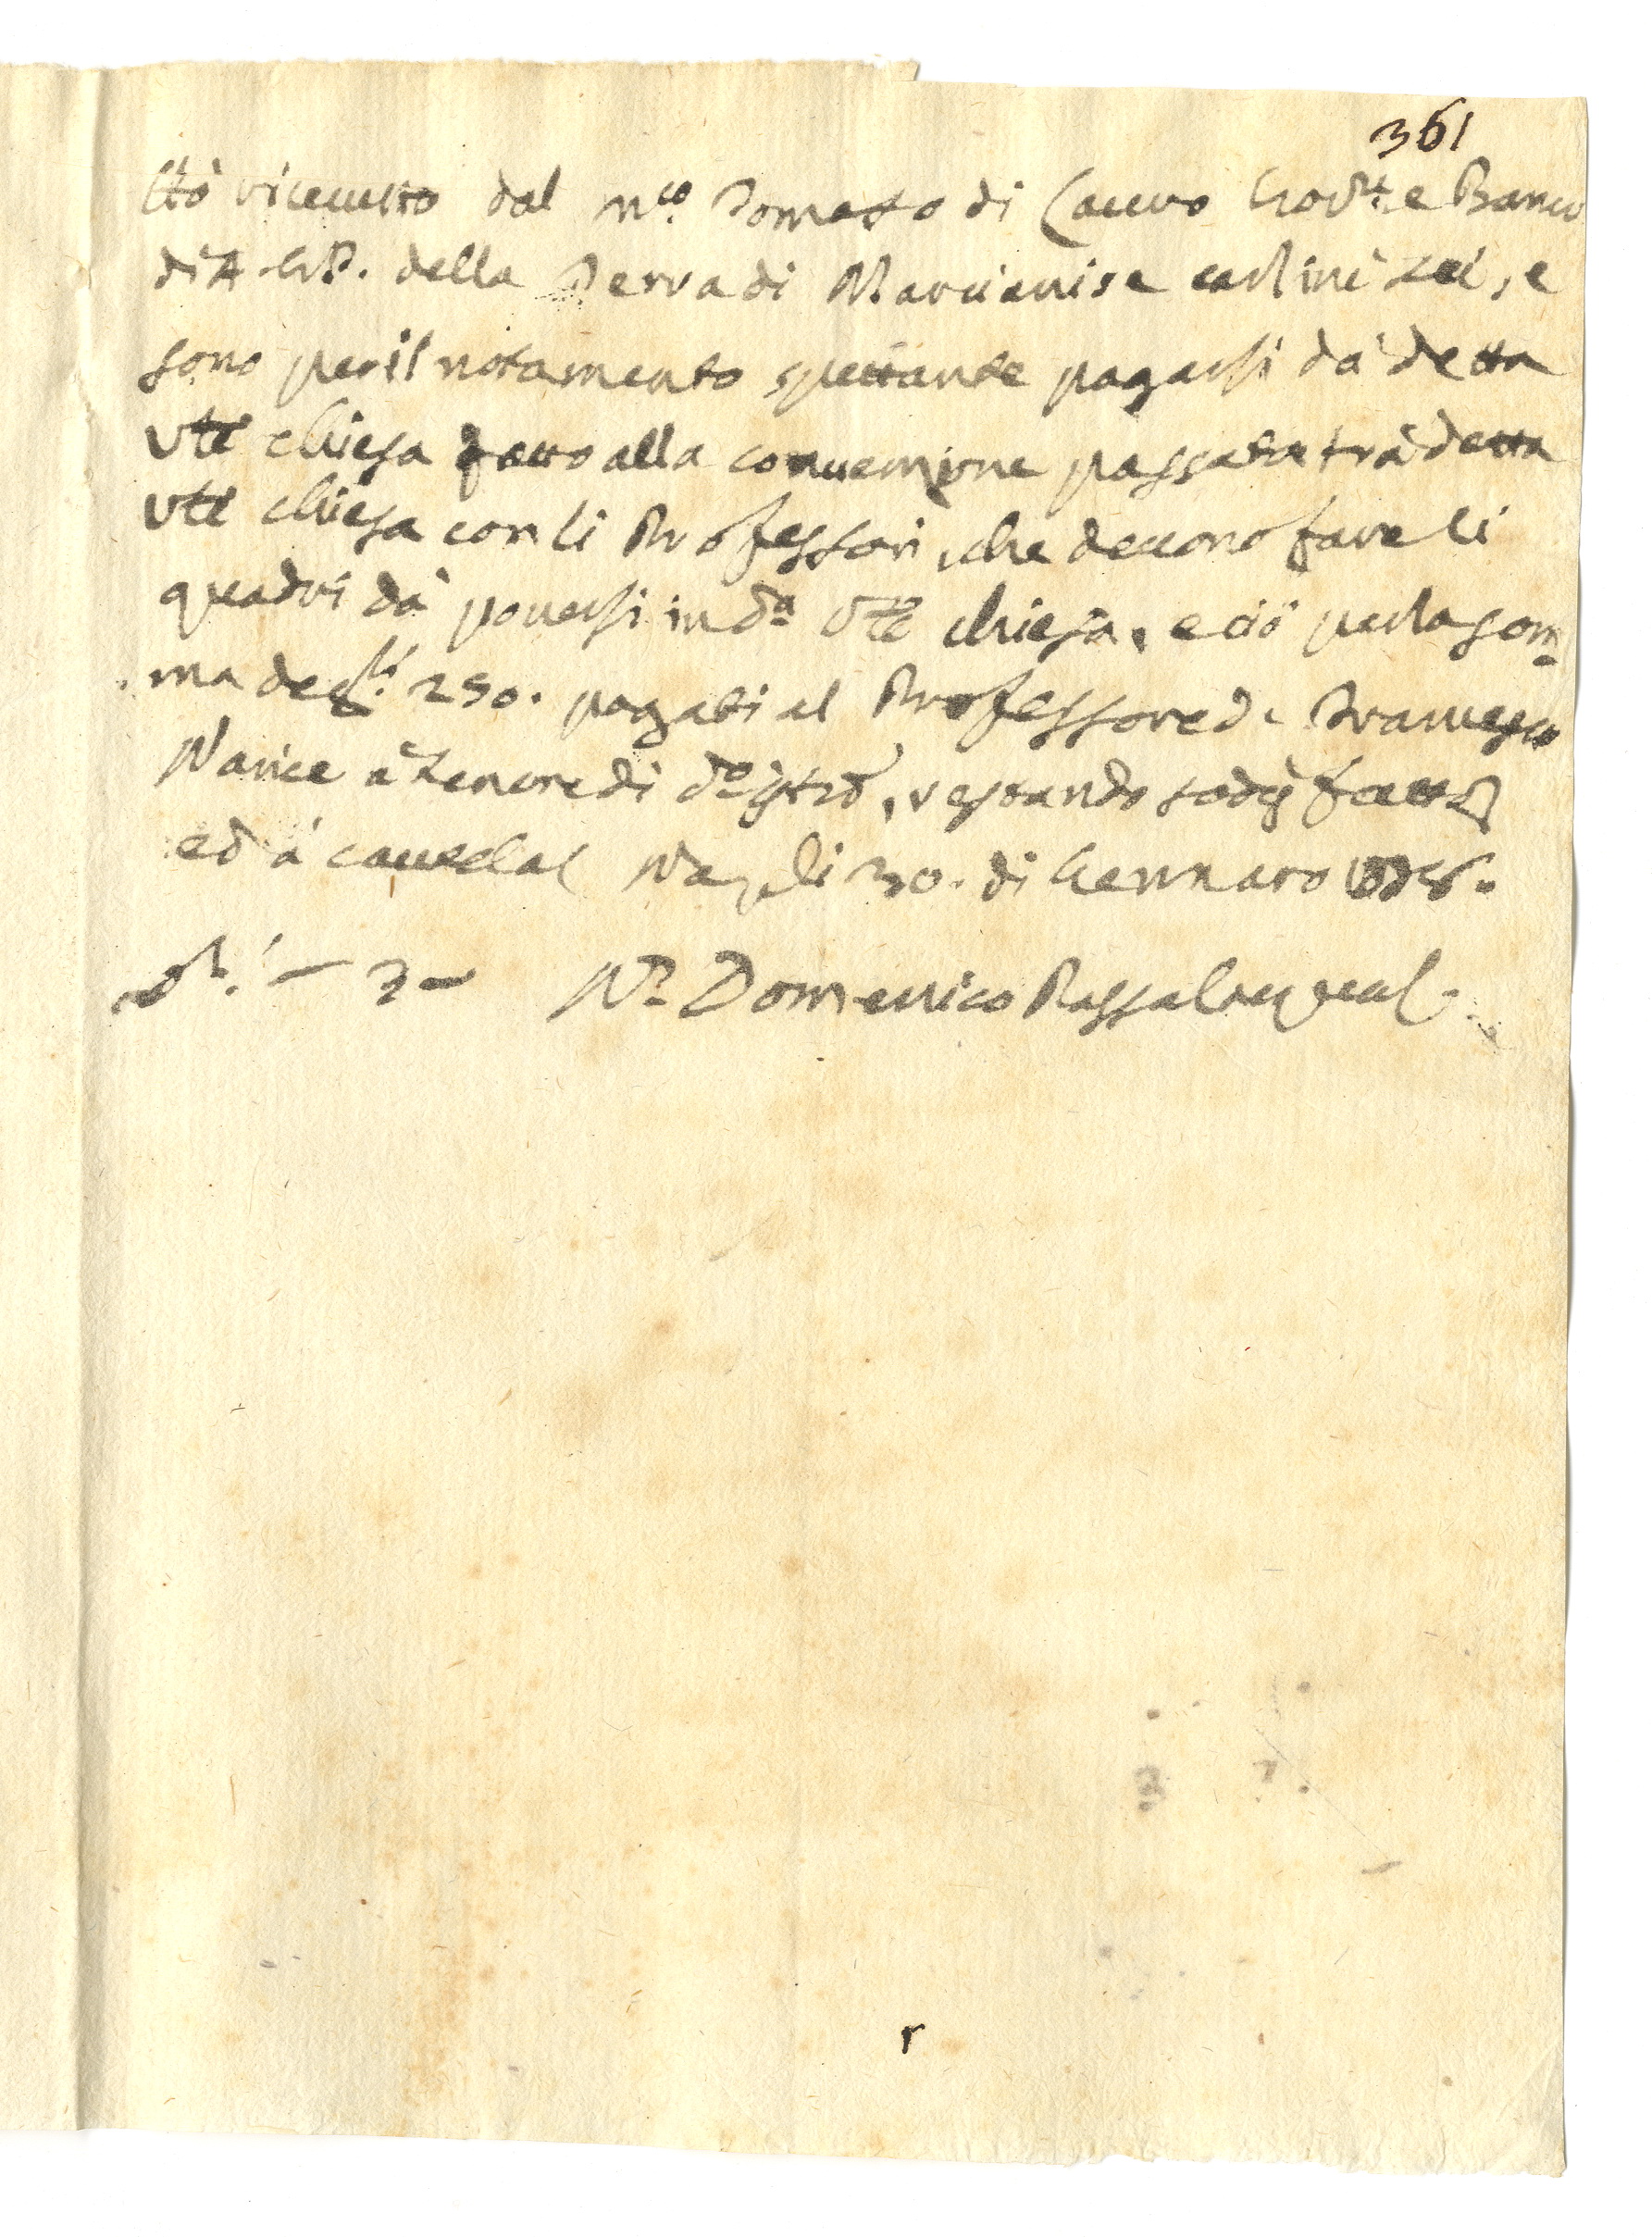 361
Hò riceuuto dal m.co Tomaso di Cauro Gov.re e Banco
di A.G.P. della Terra di Marcianise carlini sei, e
sono per il notamento spettante pagarsi da detta
V.le chiesa fatto alla conuenzione passata trà detta
V.le chiesa con li Professori, che deuono fare li
quadri dà ponersi in d.a V.le chiesa, e ciò per la som-
ma de 250. pagati al Professore D. Francesco
Narice à tenore di d.o, restando sodisfatto
ed à cautela Napoli 30. di Gennaro
N.r Domenico Passalacqua
r